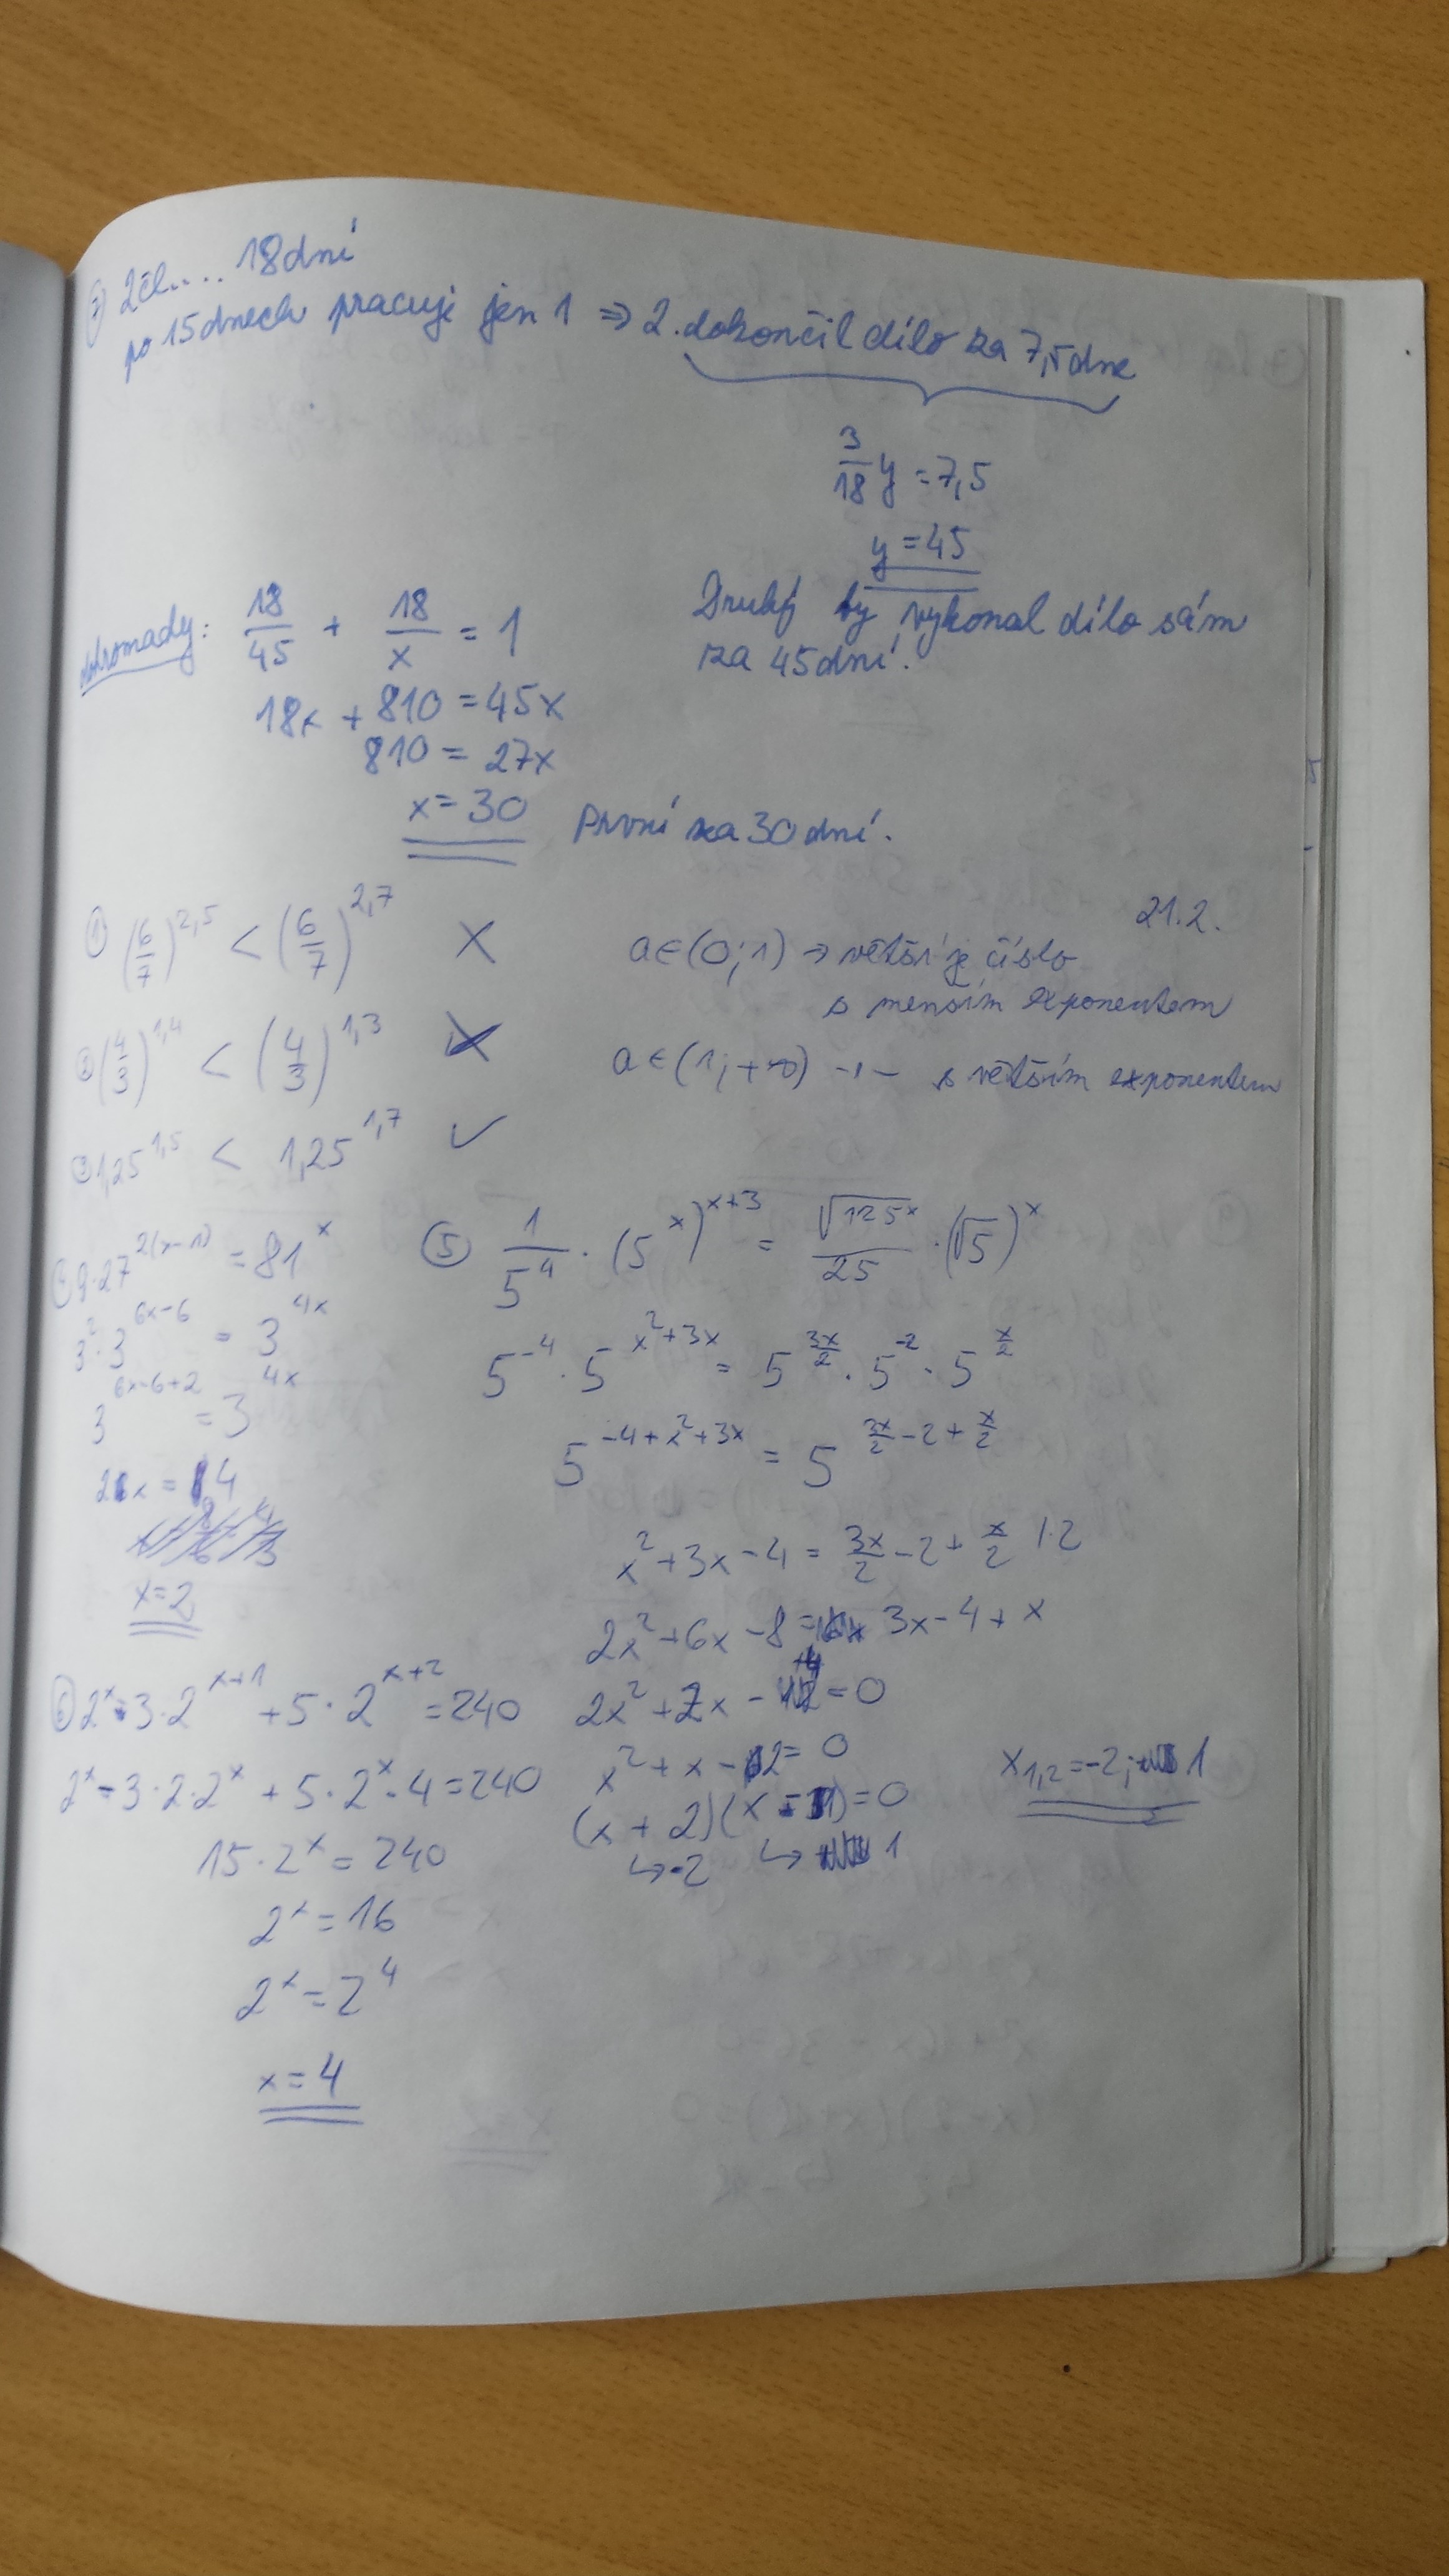 ⑦ 2čl.... 18dní
po 15dnech pracuje jen 1 ⇒ 2. dokončil dílo za 7,5dne
3/18 y = 7,5
y = 45
Druhý by vykonal dílo sám
za 45dní.
dohromady: 18/45 + 18/x = 1
18x + 810 = 45x
810 = 27x
x = 30 První za 30dní.
21.2.
① (6/7)^2,5 < (6/7)^2,7 ×
a∈(0;1) → větší je číslo
s menším exponentem
② (4/3)^1,4 < (4/3)^1,3 ×
a∈(1;+∞) -"- s větším exponentem
③ 1,25^1,5 < 1,25^1,7 ✓
9·27^2(x-1) = 81^x
3^2·3^6x-6 = 3^4x
3^6x-6+2 = 3^4x
2x = 4
x=2
⑤ 1/5^4 · (5^x)^x+3 = √125^x/25 · (√5)^x
5^-4 · 5^x²+3x = 5^3x/2 · 5^-2 · 5^x/2
5^-4+x²+3x = 5^3x/2-2+x/2
x²+3x-4 = 3x/2-2+x/2 |·2
2x²+6x-8= 3x-4+x
2x²+2x-4=0
x²+x-2=0
(x+2)(x-1)=0
↳-2 ↳ 1
x1,2=-2; 1
⑥ 2^x-3·2^x+1 +5·2^x+2 =240
2^x-3·2·2^x + 5·2^x·4=240
15·2^x = 240
2^x = 16
2^x = 2^4
x=4